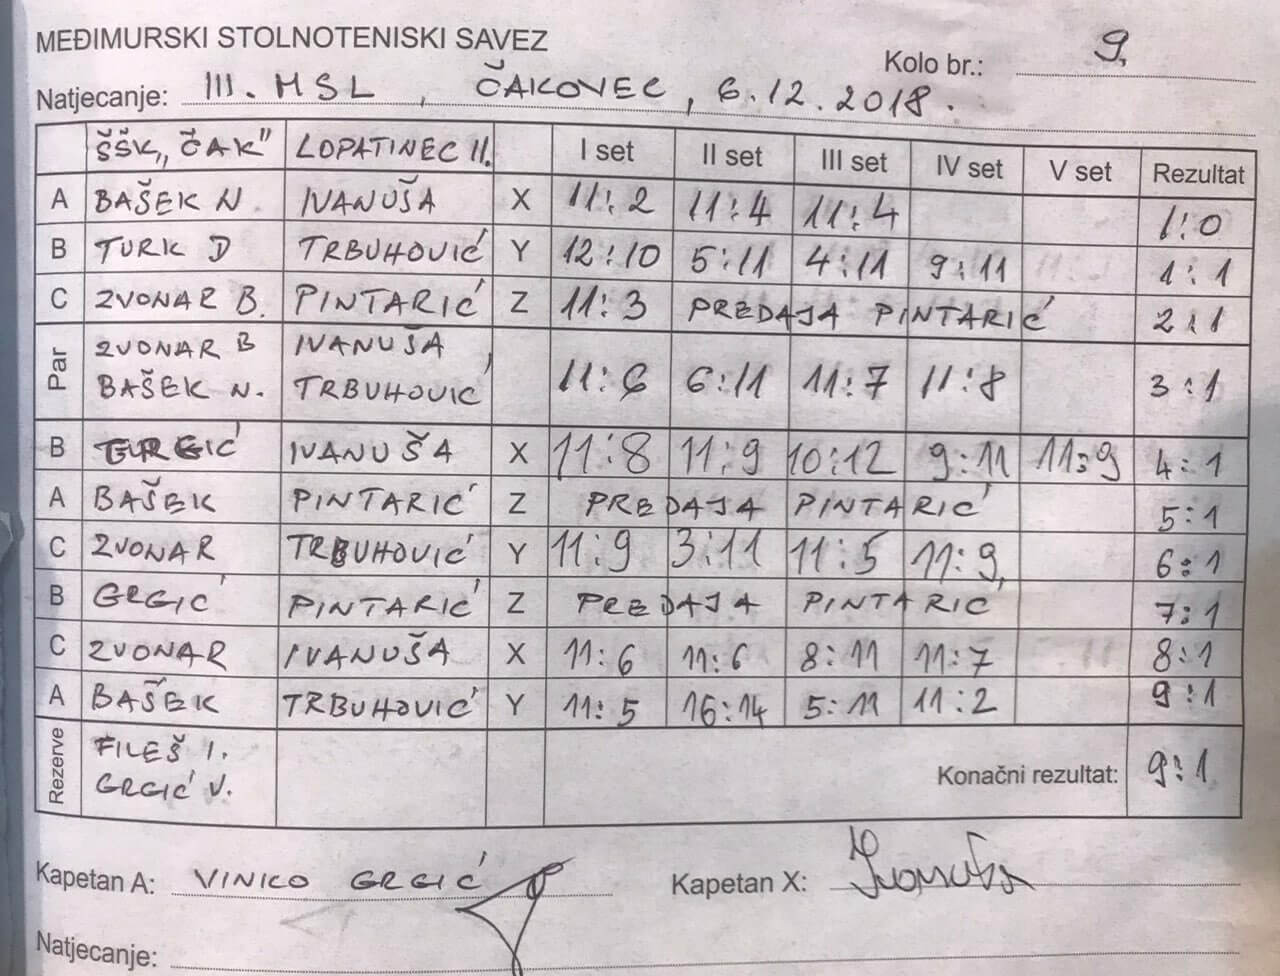 MEĐIMURSKI STOLNOTENISKI SAVEZ
Kolo br.: 9.
Natjecanje: III. MSL, ČAKOVEC, 6.12.2018.
ŠŠK „ČAK" LOPATINEC II. I set II set III set IV set V set Rezultat
A BAŠEK N. IVANUŠA X 11:2 11:4 11:4 1:0
B TURK D TRBUHOVIĆ Y 12:10 5:11 4:11 9:11 1:1
C ZVONAR B. PINTARIĆ Z 11:3 PREDAJA PINTARIĆ 2:1
Par ZVONAR B IVANUŠA
BAŠEK N. TRBUHOVIĆ 11:6 6:11 11:7 11:8 3:1
B GRGIĆ IVANUŠA X 11:8 11:9 10:12 9:11 11:9 4:1
A BAŠEK PINTARIĆ Z PREDAJA PINTARIĆ 5:1
C ZVONAR TRBUHOVIĆ Y 11:9 3:11 11:5 11:9, 6:1
B GRGIĆ PINTARIĆ Z PREDAJA PINTARIĆ 7:1
C ZVONAR IVANUŠA X 11:6 11:6 8:11 11:7 8:1
A BAŠEK TRBUHOVIĆ Y 11:5 16:14 5:11 11:2 9:1
Rezerve FILEŠ I.
GRGIĆ V. Konačni rezultat: 9:1
Kapetan A: VINKO GRGIĆ Kapetan X: Ivanuša
Natjecanje: